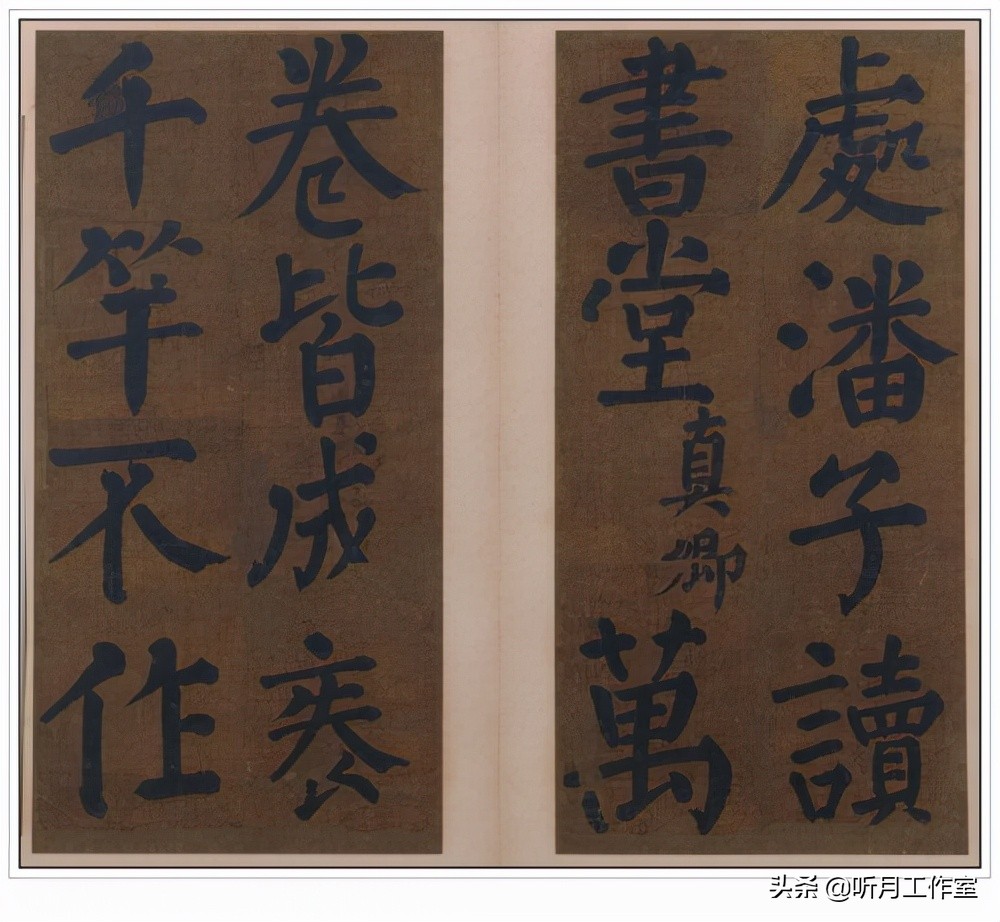 處潘子讀
書堂真卿萬
卷皆成袠
千竿不作
头条 @听月工作室